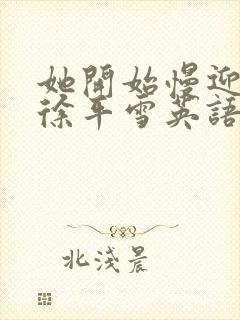 她開始慢迎
徐年雪英語
北淺晨